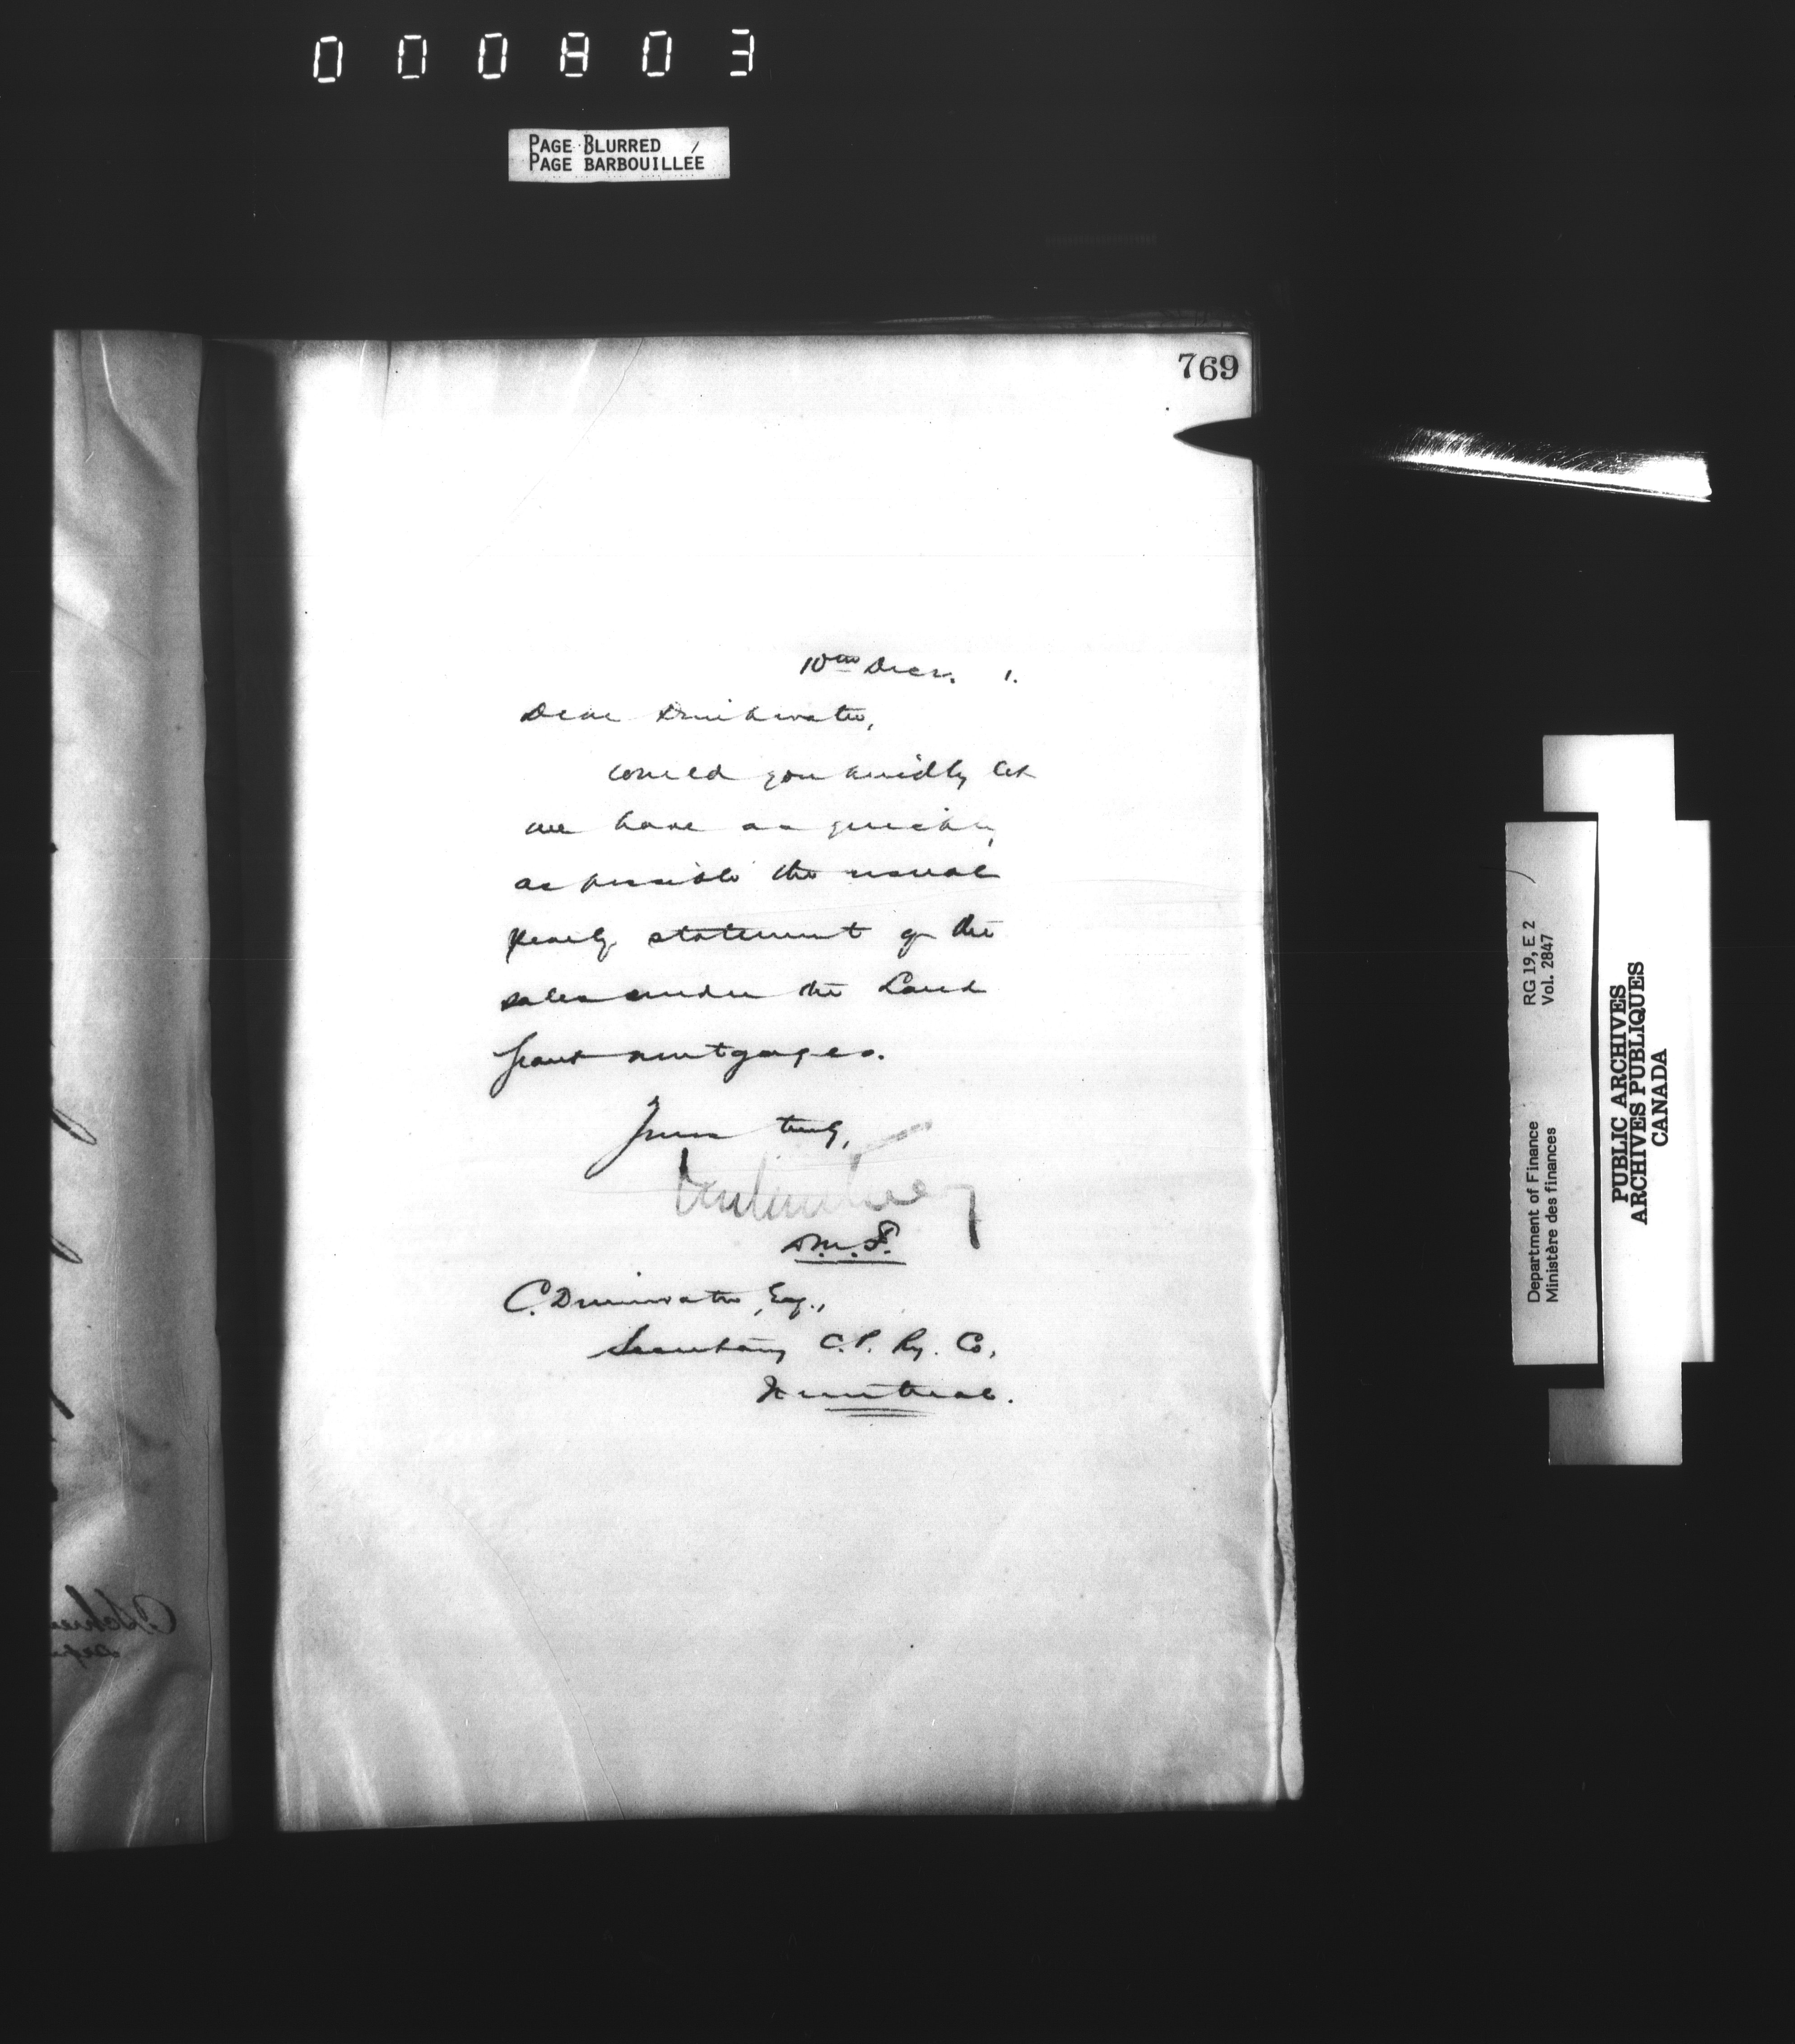 000803
PAGE BLURRED
PAGE BARBOUILLÉE
769
10th Decr. 1.
Dear Drinkwater,
Could you kindly let
me have as quickly
as possible the usual
yearly statement of the
sales under the Land
Grant mortgages.
Yours truly,
D.M.F.
C. Drinkwater, Esq.,
Secretary C.P. Ry. Co.,
Montreal.
RG 19, E 2
Vol. 2847
Department of Finance
Ministère des finances
PUBLIC ARCHIVES
ARCHIVES PUBLIQUES
CANADA